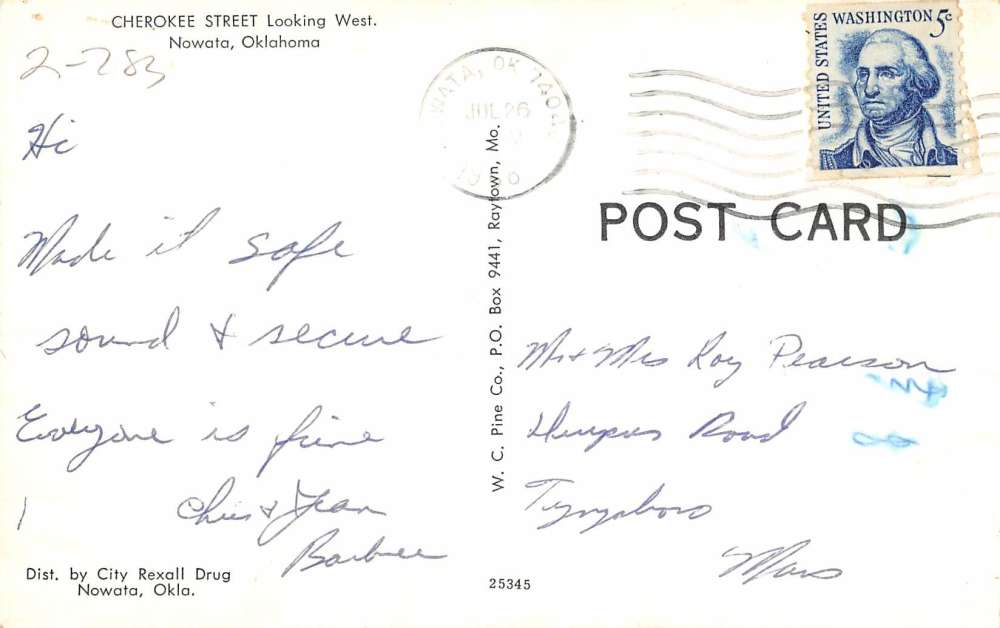 CHEROKEE STREET Looking West.
Nowata, Oklahoma
2-283
Hi
Made it safe
sound & secure
Everyone is fine
Chris & Jean
Barbee
Dist. by City Rexall Drug
Nowata, Okla.
W. C. Pine Co., P.O. Box 9441, Raytown, Mo.
25345
WATA, OK 7404
JUL 26
UNITED STATES
WASHINGTON 5c
POST CARD
Mr & Mrs Roy Pearson
Road
Tyngsboro
Mass